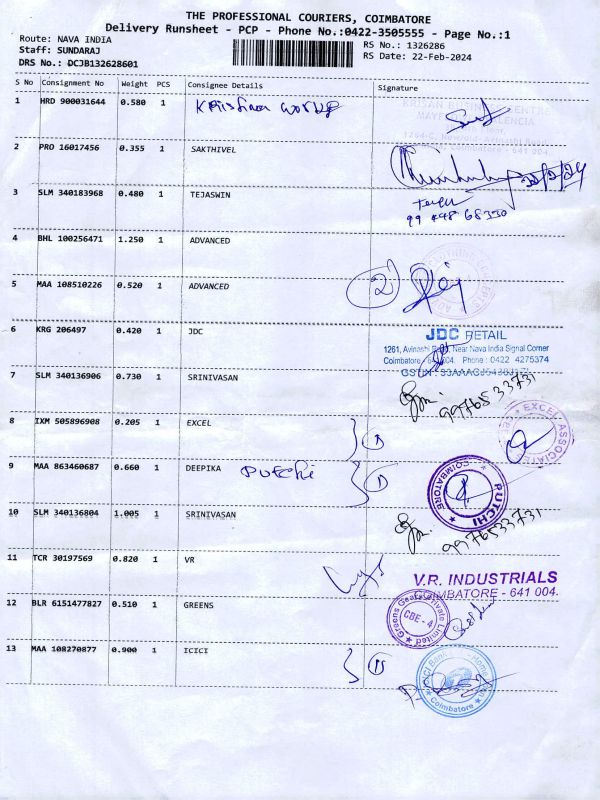 THE PROFESSIONAL COURIERS, COIMBATORE
Delivery Runsheet - PCP - Phone No.:0422-3505555 - Page No.:1
Route: NAVA INDIA
Staff: SUNDARAJ
DRS No.: DCJB132628601
RS No.: 1326286
RS Date: 22-Feb-2024
S No Consignment No Weight PCS Consignee Details Signature
1 HRD 900031644 0.580 1
2 PRO 16017456 0.355 1 SAKTHIVEL
22/2/24
3 SLM 340183968 0.480 1 TEJASWIN
4 BHL 100256471 1.250 1 ADVANCED
5 MAA 108510226 0.520 1 ADVANCED
2
6 KRG 206497 0.420 1 JDC
JDC RETAIL
1261, Avinashi Near Nava India Signal Corner
Coimbatore Phone : 0422 4275374
7 SLM 340136906 0.730 1 SRINIVASAN
9976533731
8 IXM 505896908 0.205 1 EXCEL
1
EXCEL ASSOCIATE
9 MAA 863460687 0.660 1 DEEPIKA Putchi
1
PUTCHI COIMBATORE
10 SLM 340136804 1.005 1 SRINIVASAN
9976533731
11 TCR 30197569 0.820 1 VR
V.R. INDUSTRIALS
COIMBATORE - 641 004.
12 BLR 6151477827 0.510 1 GREENS
Greens Gears Private Limited
CBE - 4
13 MAA 108270877 0.900 1 ICICI
ICICI Bank
Coimbatore